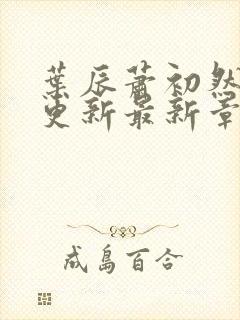 葉辰蕭初然
更新最新章
成島百合